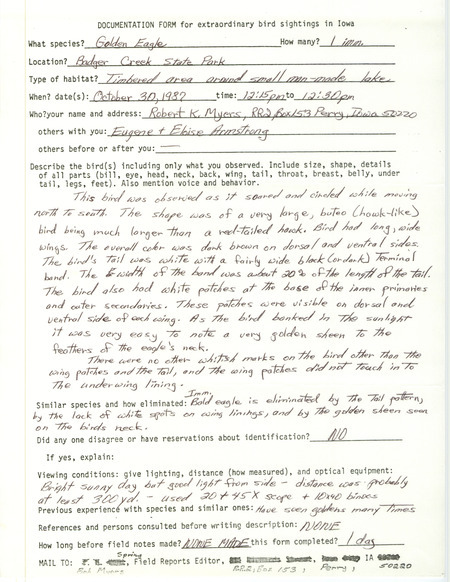 DOCUMENTATION FORM for extraordinary bird sightings in Iowa
What species? Golden Eagle How many? 1 imm.
Location? Badger Creek State Park
Type of habitat? Timbered area around small man-made lake.
When? date(s): October 30, 1987 time: 12:15pm to 12:30pm
Who? your name and address: Robert K. Myers, RR2, Box 153 Perry, Iowa 50220
others with you: Eugene + Eloise Armstrong
others before or after you: —
Describe the bird(s) including only what you observed. Include size, shape, details
of all parts (bill, eye, head, neck, back, wing, tail, throat, breast, belly, under
tail, legs, feet). Also mention voice and behavior.
This bird was observed as it soared and circled while moving
north to south. The shape was of a very large, buteo (hawk-like)
bird being much larger than a red-tailed hawk. Bird had long, wide
wings. The overall color was dark brown on dorsal and ventral sides.
The bird's Tail was white with a fairly wide black (or dark) Terminal
band. The width of the band was about 20% of the length of the tail.
The bird also had white patches at the base of the inner primaries
and outer secondaries. These patches were visible on dorsal and
ventral side of each wing. As the bird banked in the sunlight
it was very easy to note a very golden sheen to the
feathers of the eagle's neck.
There were no other whitish marks on the bird other than the
wing patches and the tail, and the wing patches did not touch in to
the underwing lining.
Similar species and how eliminated: Imm. Bald eagle is eliminated by the Tail pattern,
by the lack of white spots on wing linings, and by the golden sheen seen
on the birds neck.
Did any one disagree or have reservations about identification? NO
If yes, explain:
Viewing conditions: give lighting, distance (how measured), and optical equipment:
Bright sunny day but good light from side - distance was probably
at least 300 yd. - used 20 + 45 X scope + 10x40 binocs
Previous experience with species and similar ones: Have seen goldens many times
References and persons consulted before writing description: NONE
How long before field notes made? NONE MADE this form completed? 1 day
MAIL TO: Spring, Field Reports Editor,
RR2, Box 153, Perry, 50220